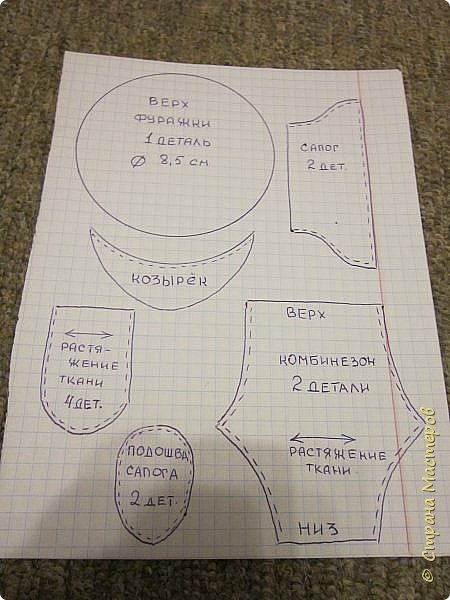 ВЕРХ
ФУРАЖКИ
1 ДЕТАЛЬ
Ø 8,5 СМ
САПОГ
2 ДЕТ.
КОЗЫРЁК
РАСТЯ-
ЖЕНИЕ
ТКАНИ
4 ДЕТ.
ВЕРХ
КОМБИНЕЗОН
2 ДЕТАЛИ
РАСТЯЖЕНИЕ
ТКАНИ.
НИЗ
ПОДОШВА
САПОГА
2 ДЕТ.
© Страна Мастеров